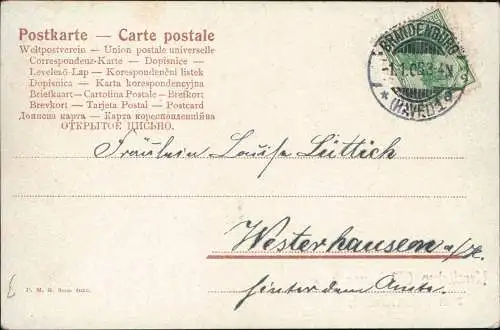 Postkarte — Carte postale
Weltpostverein — Union postale universelle
Correspondenz-Karte — Dopisnice —
Levelező-Lap — Korespondenční listek
Dopisnica — Karta korespondencyjna
Briefkaart — Cartolina Postale — Brefkort
Brevkort — Tarjeta Postal — Postcard
Дописна карта — Карта кореспонденційна
ОТКРЫТОЕ ПИСЬМО.
BRANDENBURG
3-4N
(HAVEL)
Fräulein Louise Lüttich
Westerhausen a/H.
hinter dem Amte.
P. M. B. Serie